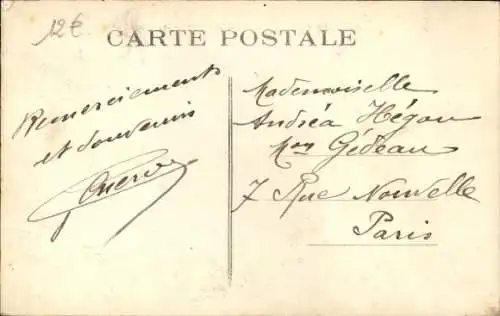 12€
CARTE POSTALE
Remerciements
et souvenirs
Mademoiselle
Andréa Hégou
Mon Gédeau
7 Rue Nouvelle
Paris